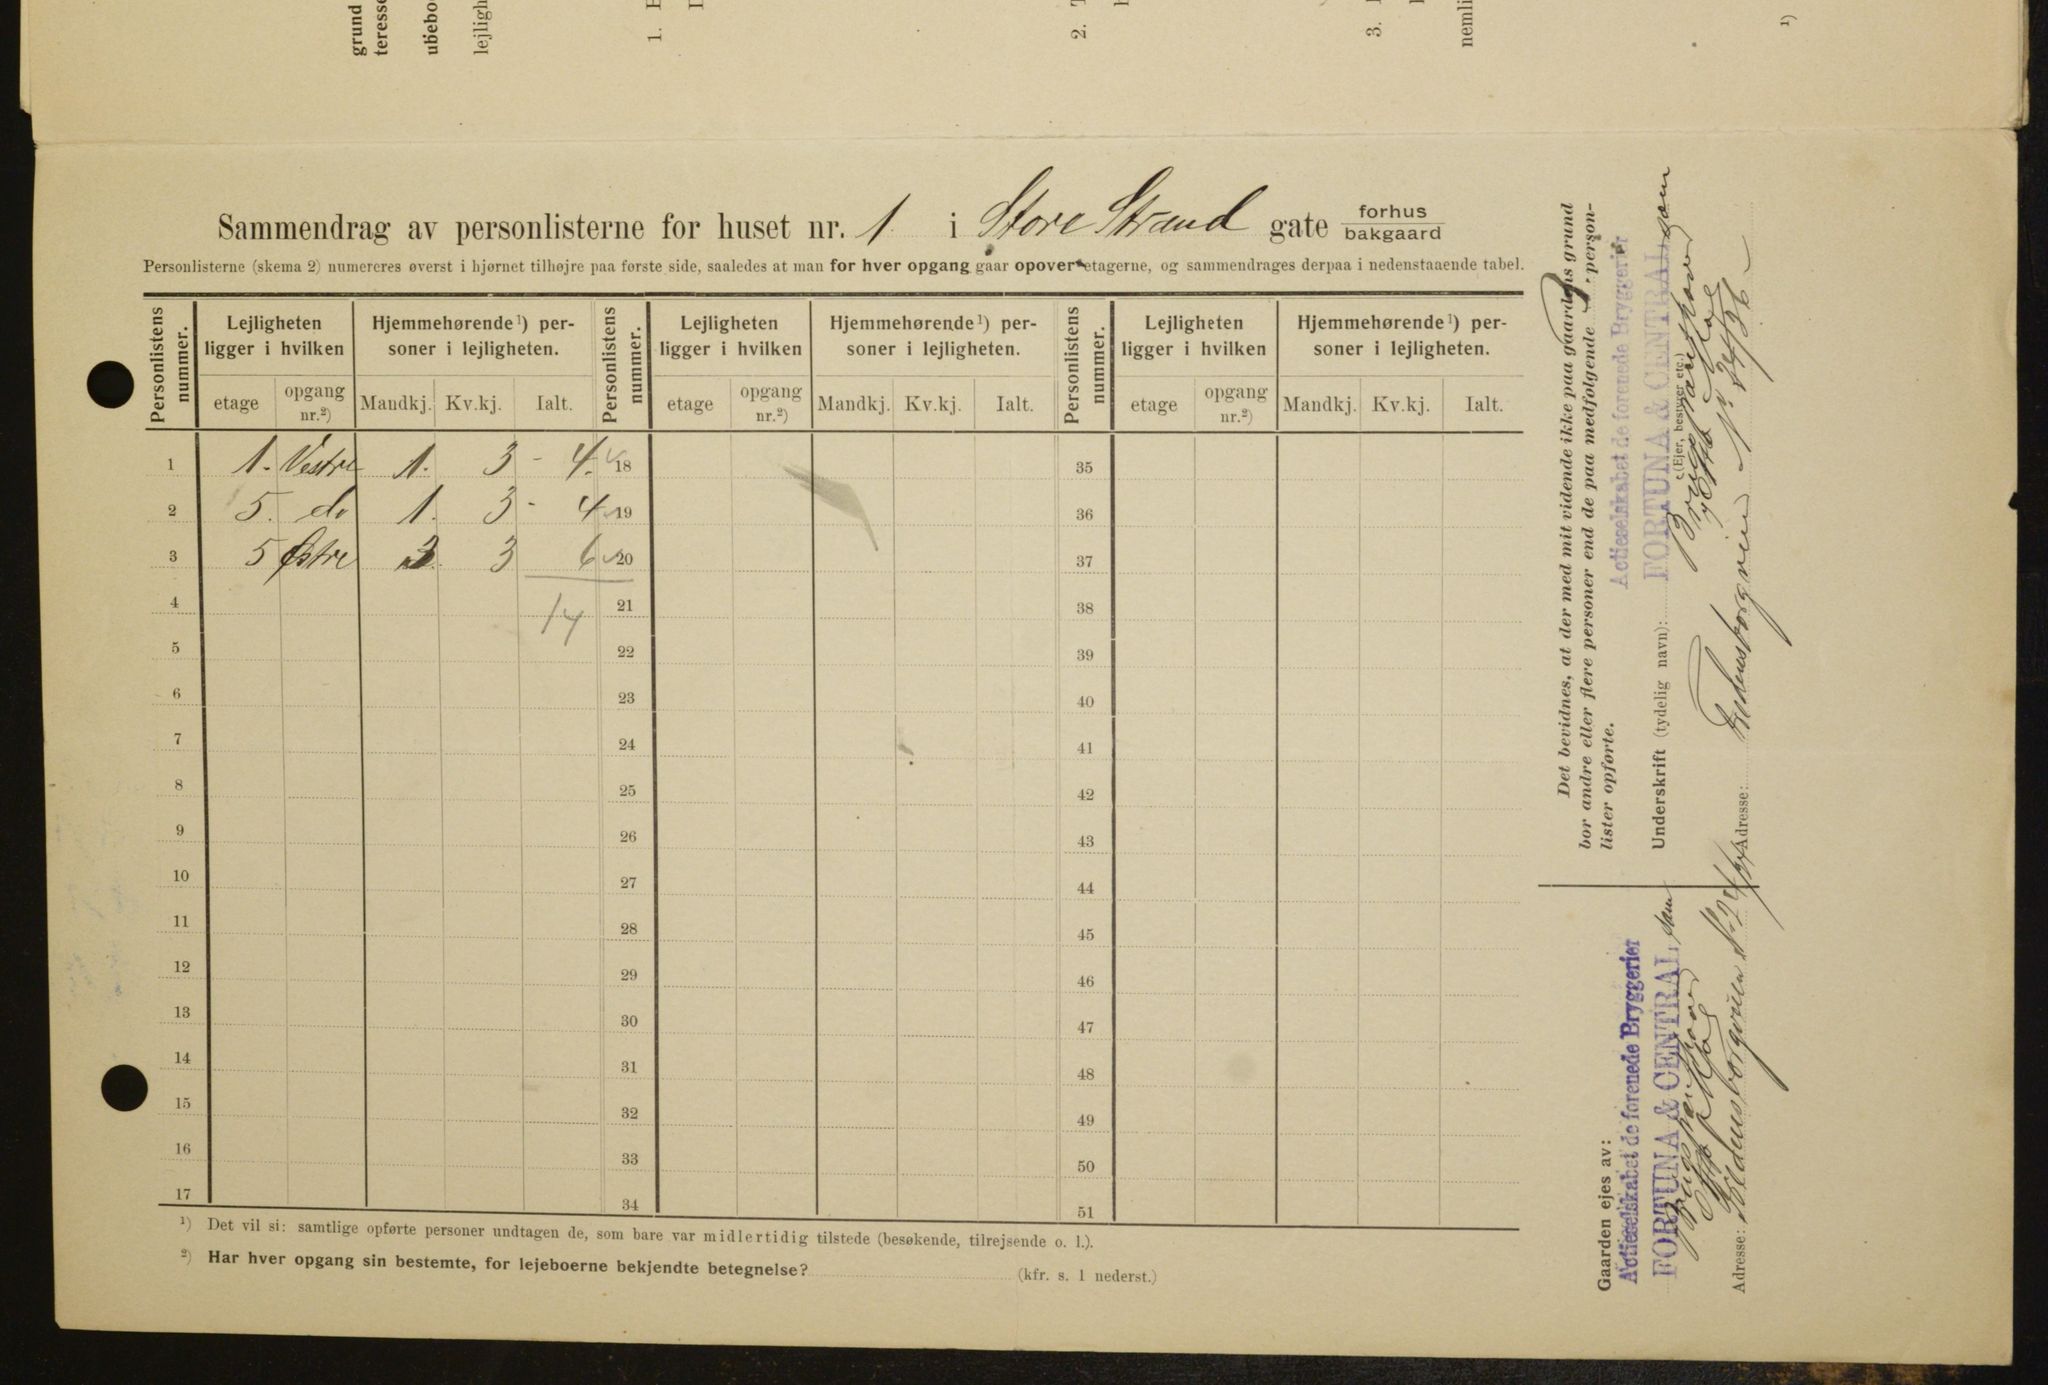 grund
teresse
ubebo
lejligh
1.
2.
3.
nemli
¹)
Sammendrag av personlisterne for huset nr. 1 i Store Strand gate forhus
bakgaard
Personlisterne (skema 2) numereres øverst i hjørnet tilhøjre paa første side, saaledes at man for hver opgang gaar opover etagerne, og sammendrages derpaa i nedenstaaende tabel.
Personlistens nummer. Lejligheten ligger i hvilken Hjemmehørende ¹) personer i lejligheten. Personlistens nummer. Lejligheten ligger i hvilken Hjemmehørende ¹) personer i lejligheten. Personlistens nummer. Lejligheten ligger i hvilken Hjemmehørende ¹) personer i lejligheten.
etage opgang nr.²) Mandkj. Kv.kj. Ialt. etage opgang nr.²) Mandkj. Kv.kj. Ialt. etage opgang nr.²) Mandkj. Kv.kj. Ialt.
1 1. Vestre 1. 3 - 4. 18 35
2 5. do 1. 3 - 4 19 36
3 5 Østre 3 3 6 20 37
4 14 21 38
5 22 39
6 23 40
7 24 41
8 25 42
9 26 43
10 27 44
11 28 45
12 29 46
13 30 47
14 31 48
15 32 49
16 33 50
17 34 51
¹) Det vil si: samtlige opførte personer undtagen de, som bare var midlertidig tilstede (besøkende, tilrejsende o. l.).
²) Har hver opgang sin bestemte, for lejeboerne bekjendte betegnelse? (kfr. s. 1 nederst.)
Det bevidnes, at der med mit vidende ikke paa gaardens grund
bor andre eller flere personer end de paa medfølgende 3 person-
lister opførte.
Actieselskabet de forenede Bryggerier
FORTUNA & CENTRAL
Underskrift (tydelig navn):
(Ejer, bestyrer etc.)
Adresse: Fredensborgveien No 24/26
Gaarden ejes av:
Actieselskabet de forenede Bryggerier
FORTUNA & CENTRAL
Adresse: Fredensborgveien No 24/26